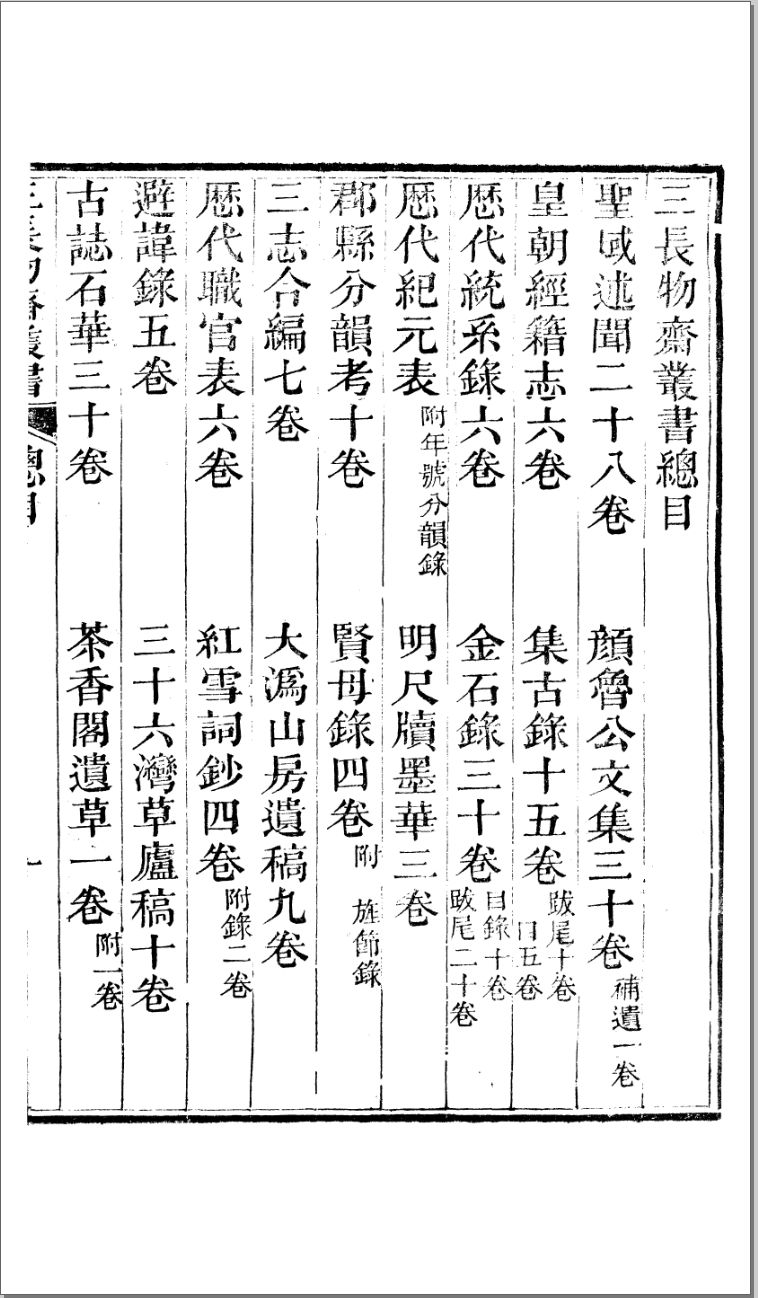 三長物齋叢書總目
聖域述聞二十八卷　顏魯公文集三十卷 補遺一卷
皇朝經籍志六卷　集古錄十五卷 跋尾十卷 目五卷
歷代統系錄六卷　金石錄三十卷 目錄十卷 跋尾二十卷
歷代紀元表 附年號分韻錄　明尺牘墨華三卷
郡縣分韻考十卷　賢母錄四卷 附 旌節錄
三志合編七卷　大潙山房遺稿九卷
歷代職官表六卷　紅雪詞鈔四卷 附錄二卷
避諱錄五卷　三十六灣草廬稿十卷
古誌石華三十卷　茶香閣遺草一卷 附一卷
三長物齋叢書　總目　一